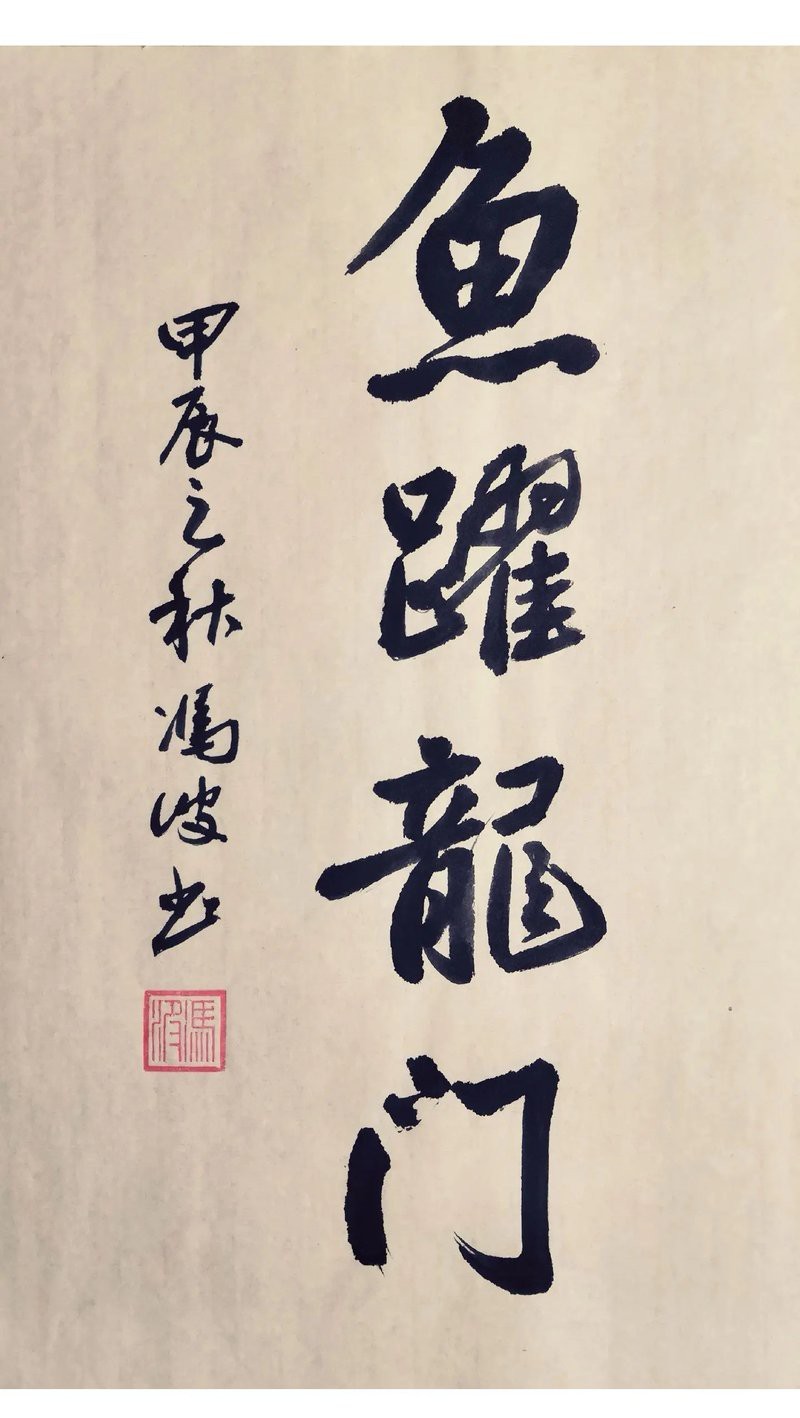 魚躍龍门
甲辰之秋馮波书
馮波